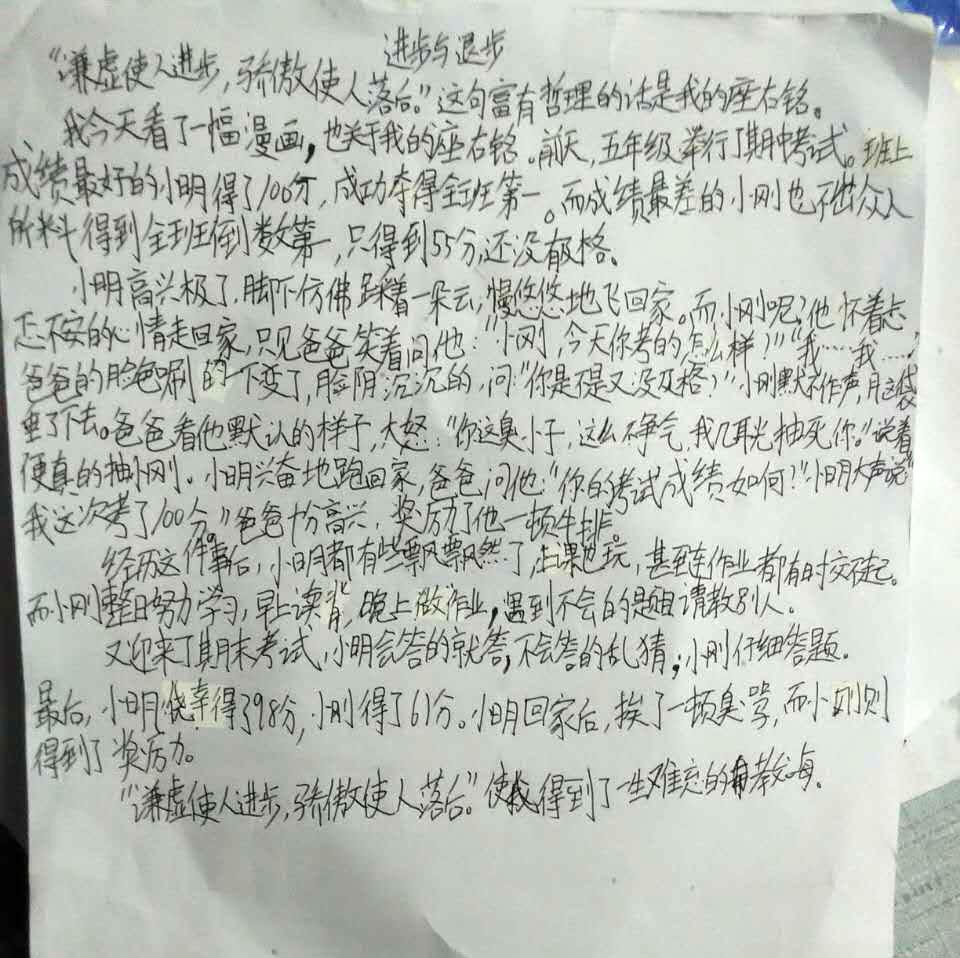 进步与退步
“谦虚使人进步，骄傲使人落后。”这句富有哲理的话是我的座右铭。
我今天看了一幅漫画，也关于我的座右铭。前天，五年级举行了期中考试。班上
成绩最好的小明得了100分，成功夺得全班第一。而成绩最差的小刚也不出众人
所料得到全班倒数第一，只得到55分，还没及格。
小明高兴极了，脚下仿佛踩着一朵云，慢悠悠地飞回家。而小刚呢？他怀着忐
忑不安的心情走回家，只见爸爸笑着问他：“小刚，今天你考的怎么样？”“我……我……”
爸爸的脸色唰的一下变了，脸阴沉沉的，问：“你是不是又没及格？”小刚默不作声，脑袋
垂了下去。爸爸看他默认的样子，大怒：“你这臭小子，这么不争气，我几耳光抽死你。”说着
便真的抽小刚。小明兴奋地跑回家，爸爸问他：“你的考试成绩如何？”小明大声说“
我这次考了100分。”爸爸十份高兴，奖厉了他一顿牛排。
经历这件事后，小明都有些飘飘然了，上课也玩，甚至连作业都有时交不起。
而小刚整日努力学习，早上读背，晚上做作业，遇到不会的题目请教别人。
又迎来了期末考试，小明会答的就答，不会答的乱猜；小刚仔细答题。
最后，小明侥幸得了98分，小刚得了61分。小明回家后，挨了一顿臭骂，而小刚则
得到了奖厉。
“谦虚使人进步，骄傲使人落后。”使我得到了一生难忘的教诲。